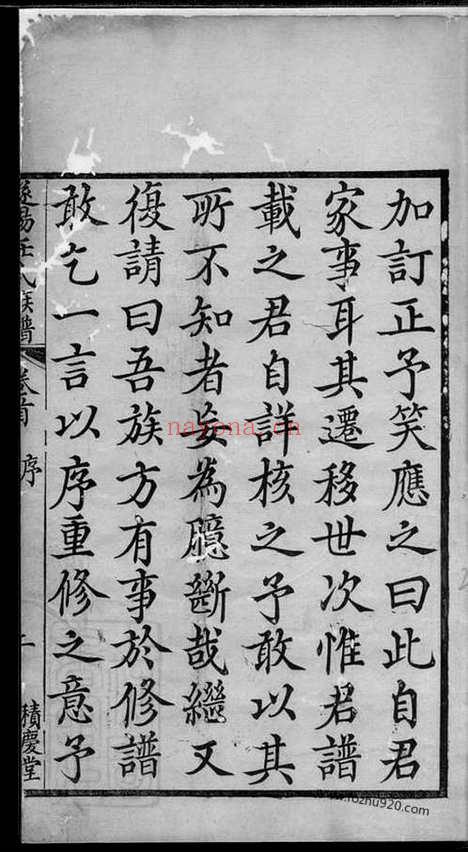 加訂正予笑應之曰此自君
家事耳其遷移世次惟君譜
載之君自詳核之予敢以其
所不知者妄為臆斷哉繼又
復請曰吾族方有事於修譜
敢乞一言以序重修之意予
氏族譜 卷首 序 二 積慶堂
nayona.cn
www.fozhu920.com